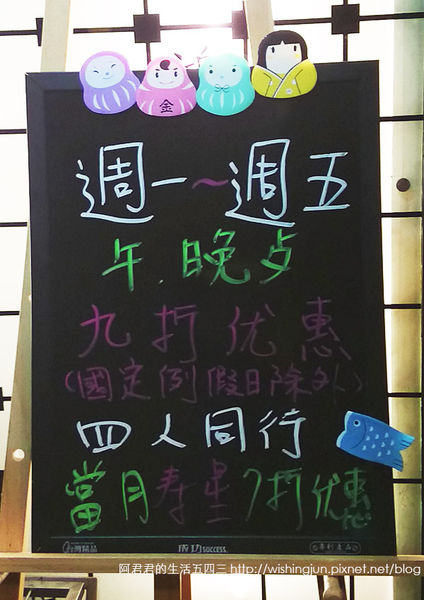 金
週一~週五
午.晚歺
九折优惠
(國定例假日除外)
四人同行
當月寿星7折优惠
台灣精品
成功 SUCCESS
專利產品
阿君君的生活五四三 http://wishingjun.pixnet.net/blog